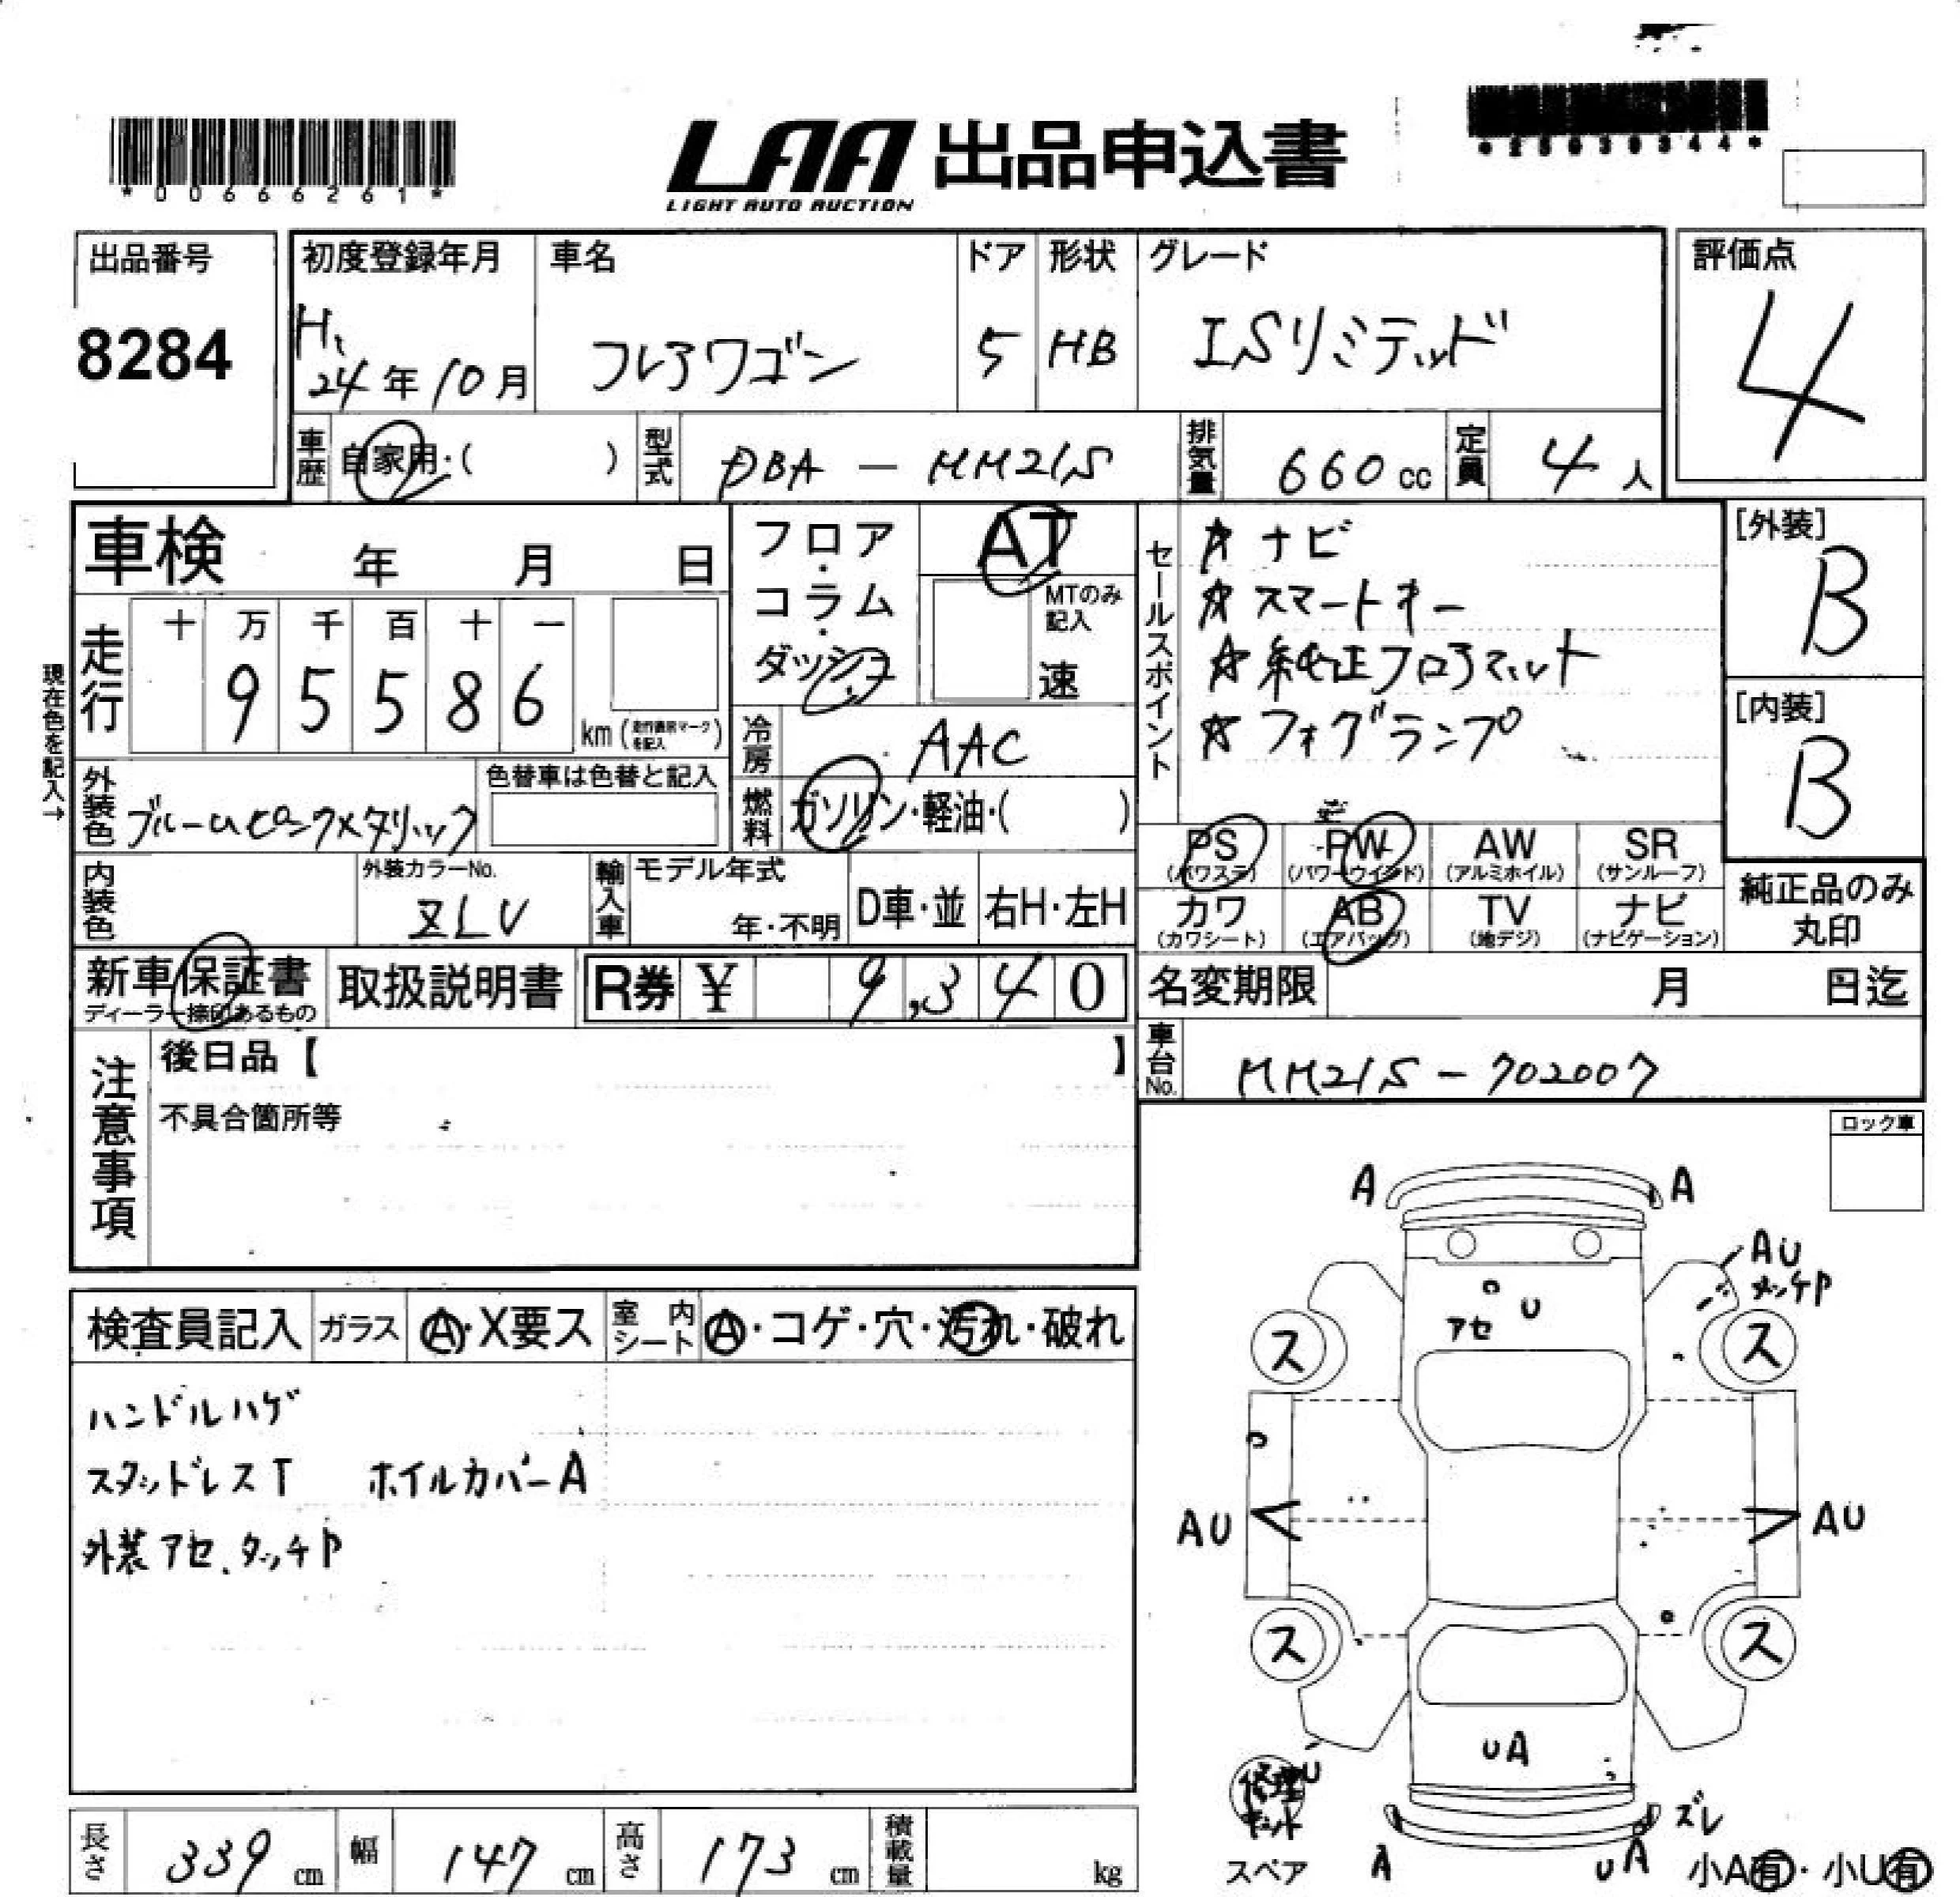 *00666261*
LAA 出品申込書
LIGHT AUTO AUCTION
*25030344*
出品番号
8284
初度登録年月
H.
24年10月
車名
フレアワゴン
ドア
5
形状
HB
グレード
ISリミテッド
評価点
4
車歴
自家用・( )
型式
DBA - MM21S
排気量
660cc
定員
4人
車検 年 月 日
フロア・コラム・ダッシュ
AT
MTのみ記入
速
セールスポイント
☆ナビ
☆スマートキー
☆純正フロアマット
☆フォグランプ
[外装]
B
[内装]
B
現在色を記入→
走行
十 万 千 百 十 一
9 5 5 8 6
km(走行距離マークを記入)
冷房
AAC
外装色
色替車は色替と記入
燃料
ガソリン・軽油・( )
PS
(パワステ)
PW
(パワーウインド)
AW
(アルミホイル)
SR
(サンルーフ)
カワ
(カワシート)
AB
(エアバッグ)
TV
(地デジ)
ナビ
(ナビゲーション)
純正品のみ
丸印
内装色
外装カラーNo.
ZLV
輸入車
モデル年式
年・不明
D車・並
右H・左H
新車保証書
ディーラー捺印あるもの
取扱説明書
R券 ¥ 9,340
名変期限 月 日迄
車台No.
MM21S - 702007
注意事項
後日品【 】
不具合箇所等
ロック車
検査員記入
ガラス
A・X要ス
室内シート
A・コゲ・穴・汚れ・破れ
ハンドルハゲ
スタッドレスT ホイルカバーA
外装アセ、タッチP
A A
AU
タッチP
U
アセ
ス ス
AU AU
ス ス
UA
U
修理キット
スペア
A
UA
ズレ
小A有・小U有
長さ 339cm
幅 147cm
高さ 173cm
積載量 kg